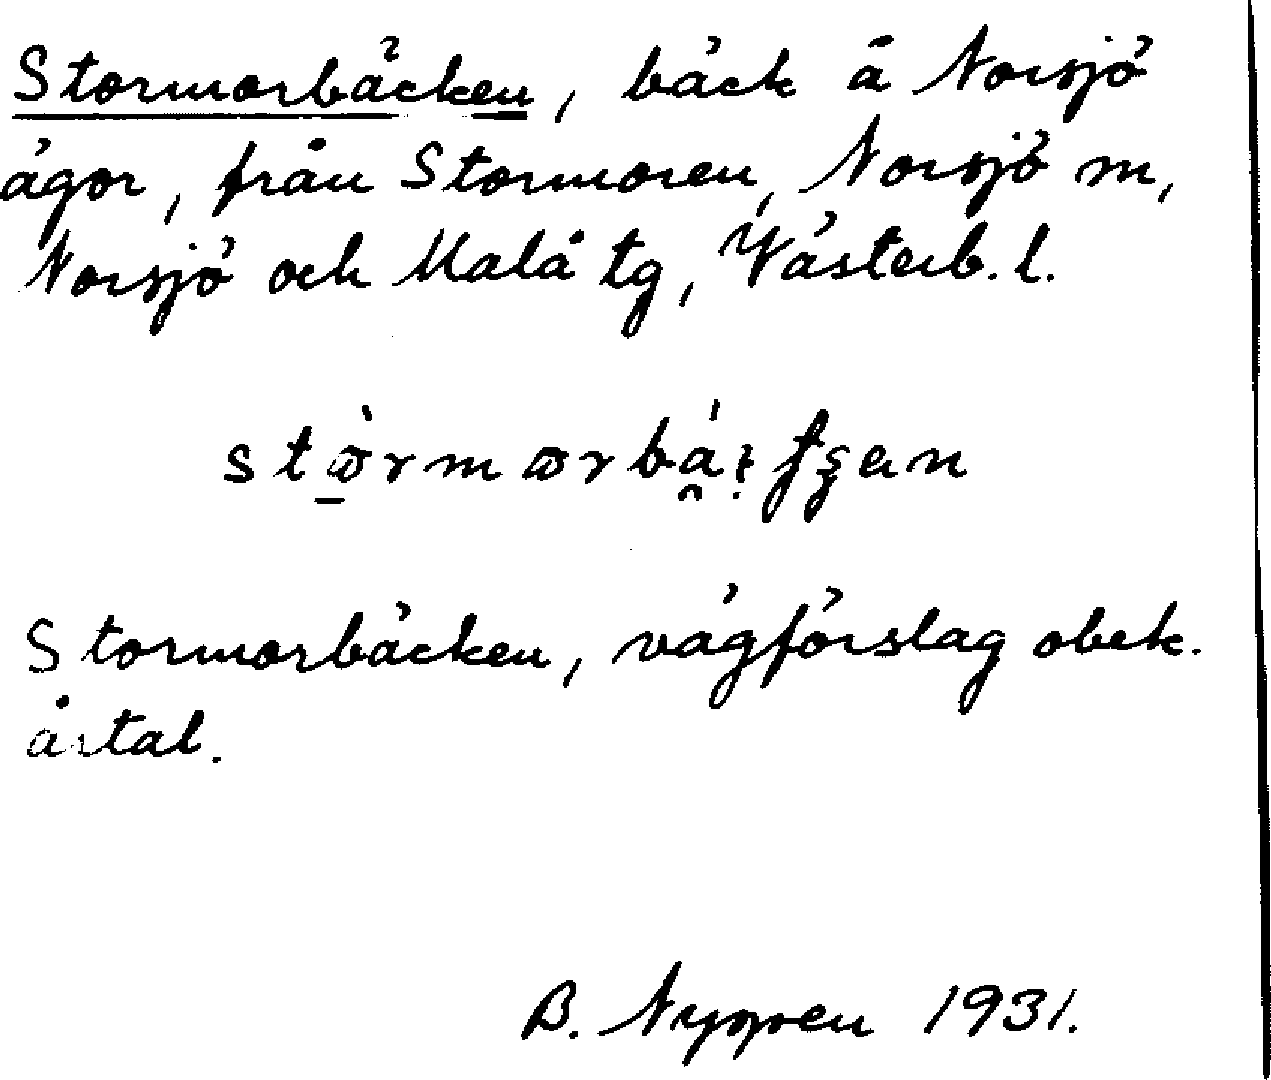 Stormorbäcken, bäck å Norsjö
ägor, från Stormoren, Norsjö m,
Norsjö och Malå tg, Västerb. l.
Stormorbäcken, vägförslag obek.
årtal.
B. Nygren 1931.